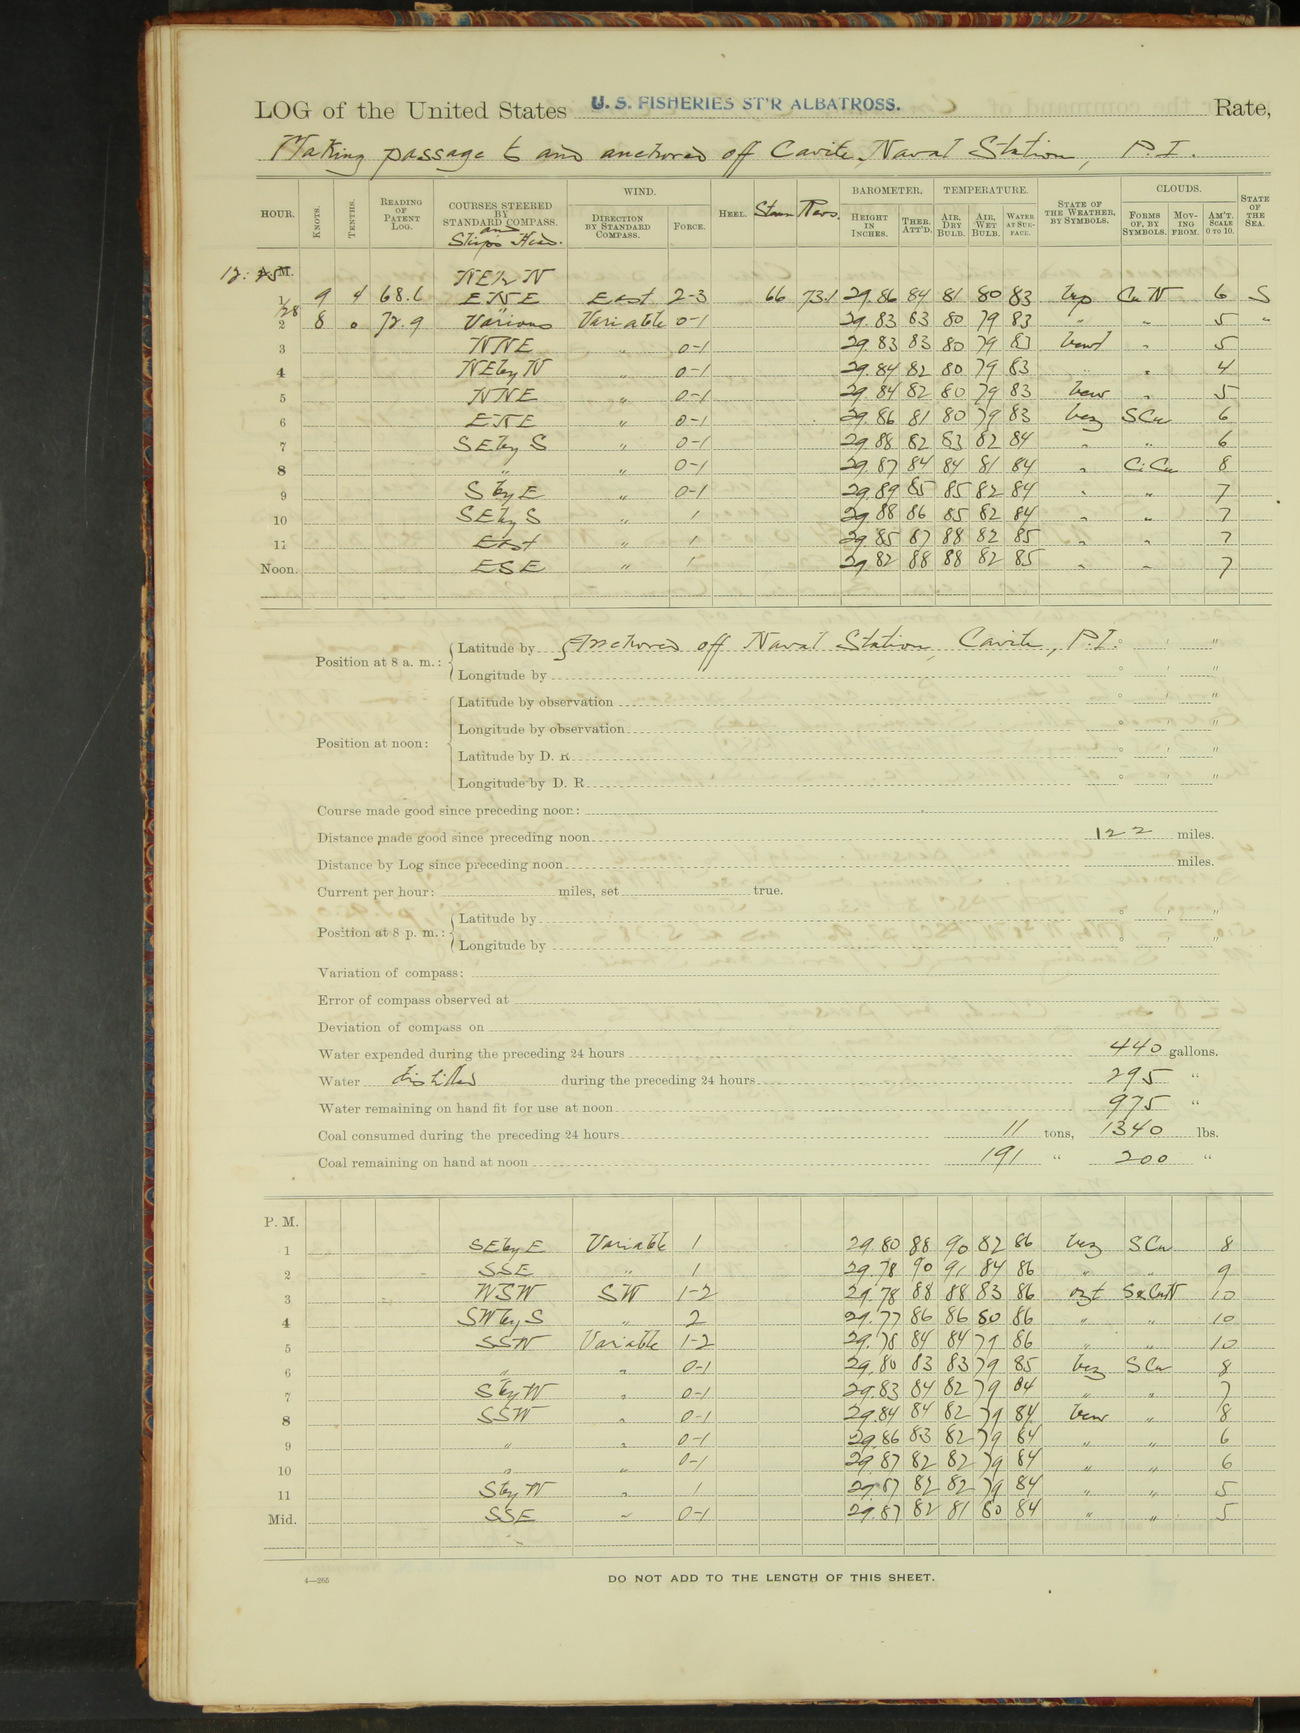 LOG of the United States U. S. FISHERIES ST'R ALBATROSS. Rate,
Making passage to and anchored off Cavite, Naval Station, P.I.
HOUR. KNOTS. TENTHS. READING OF PATENT LOG. COURSES STEERED BY STANDARD COMPASS. and Ship's Head. WIND. DIRECTION BY STANDARD COMPASS. FORCE. HEEL. Steam Revs. BAROMETER. HEIGHT IN INCHES. THER. ATT'D. TEMPERATURE. AIR, DRY BULB. AIR, WET BULB. WATER AT SURFACE. STATE OF THE WEATHER, BY SYMBOLS. CLOUDS. FORMS OF, BY SYMBOLS. MOVING FROM. AM'T. SCALE 0 TO 10. STATE OF THE SEA.
A. M.
NE by N
1 9 4 68.6 ENE East 2-3 66 73.1 29.86 84 81 80 83 bcp Cu N 6 S
1/28
2 8 0 72.9 Various Variable 0-1 29.83 83 80 79 83 " " 5 "
3 NNE " 0-1 29.83 83 80 79 83 " 5
4 NE by N " 0-1 29.84 82 80 79 83 " " 4
5 NNE " 0-1 29.84 82 80 79 83 bcw " 5
6 ENE " 0-1 29.86 81 80 79 83 bcz SCu 6
7 SE by S " 0-1 29.88 82 83 82 84 " " 6
8 " " 0-1 29.87 84 84 81 84 " CiCu 8
9 S by E " 0-1 29.89 85 85 82 84 " " 7
10 SE by S " 1 29.88 86 85 82 84 " " 7
11 East " 1 29.85 87 88 82 85 " " 7
Noon. ESE " 1 29.82 88 88 82 85 " " 7
Position at 8 a. m.: Latitude by Anchored off Naval Station, Cavite, P.I. ° ′ ″
Longitude by ° ′ ″
Position at noon: Latitude by observation ° ′ ″
Longitude by observation ° ′ ″
Latitude by D. R ° ′ ″
Longitude by D. R ° ′ ″
Course made good since preceding noon:
Distance made good since preceding noon 122 miles.
Distance by Log since preceding noon miles.
Current per hour: miles, set true.
Position at 8 p. m.: Latitude by ° ′ ″
Longitude by ° ′ ″
Variation of compass:
Error of compass observed at
Deviation of compass on
Water expended during the preceding 24 hours 440 gallons.
Water distilled during the preceding 24 hours 295 "
Water remaining on hand fit for use at noon 975 "
Coal consumed during the preceding 24 hours 11 tons, 1340 lbs.
Coal remaining on hand at noon 191 " 200 "
P. M.
1 SE by E Variable 1 29.80 88 90 82 86 bcz SCu 8
2 SSE " 1 29.78 90 91 84 86 " " 9
3 WSW SW 1-2 29.78 88 88 83 86 ozt 10
4 SW by S " 2 29.77 86 86 80 86 " " 10
5 SSW Variable 1-2 29.78 84 84 79 86 " " 10
6 " " 0-1 29.80 83 83 79 85 bcz SCu 8
7 S by W " 0-1 29.83 84 82 79 84 " " 7
8 SSW " 0-1 29.84 84 82 79 84 bcw " 8
9 " " 0-1 29.86 83 82 79 84 " " 6
10 " " 0-1 29.87 82 82 79 84 " " 6
11 S by W " 1 29.87 82 82 79 84 " " 5
Mid. SSE " 0-1 29.87 82 81 80 84 " " 5
4—265
DO NOT ADD TO THE LENGTH OF THIS SHEET.